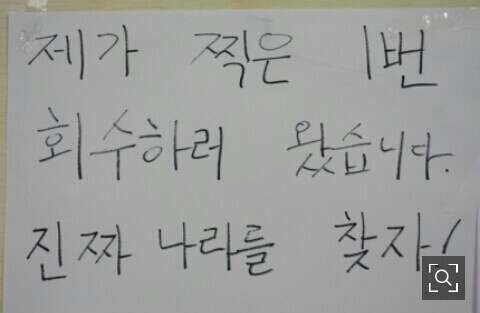 제가 찍은 1번
회수하러 왔습니다.
진짜 나라를 찾자!